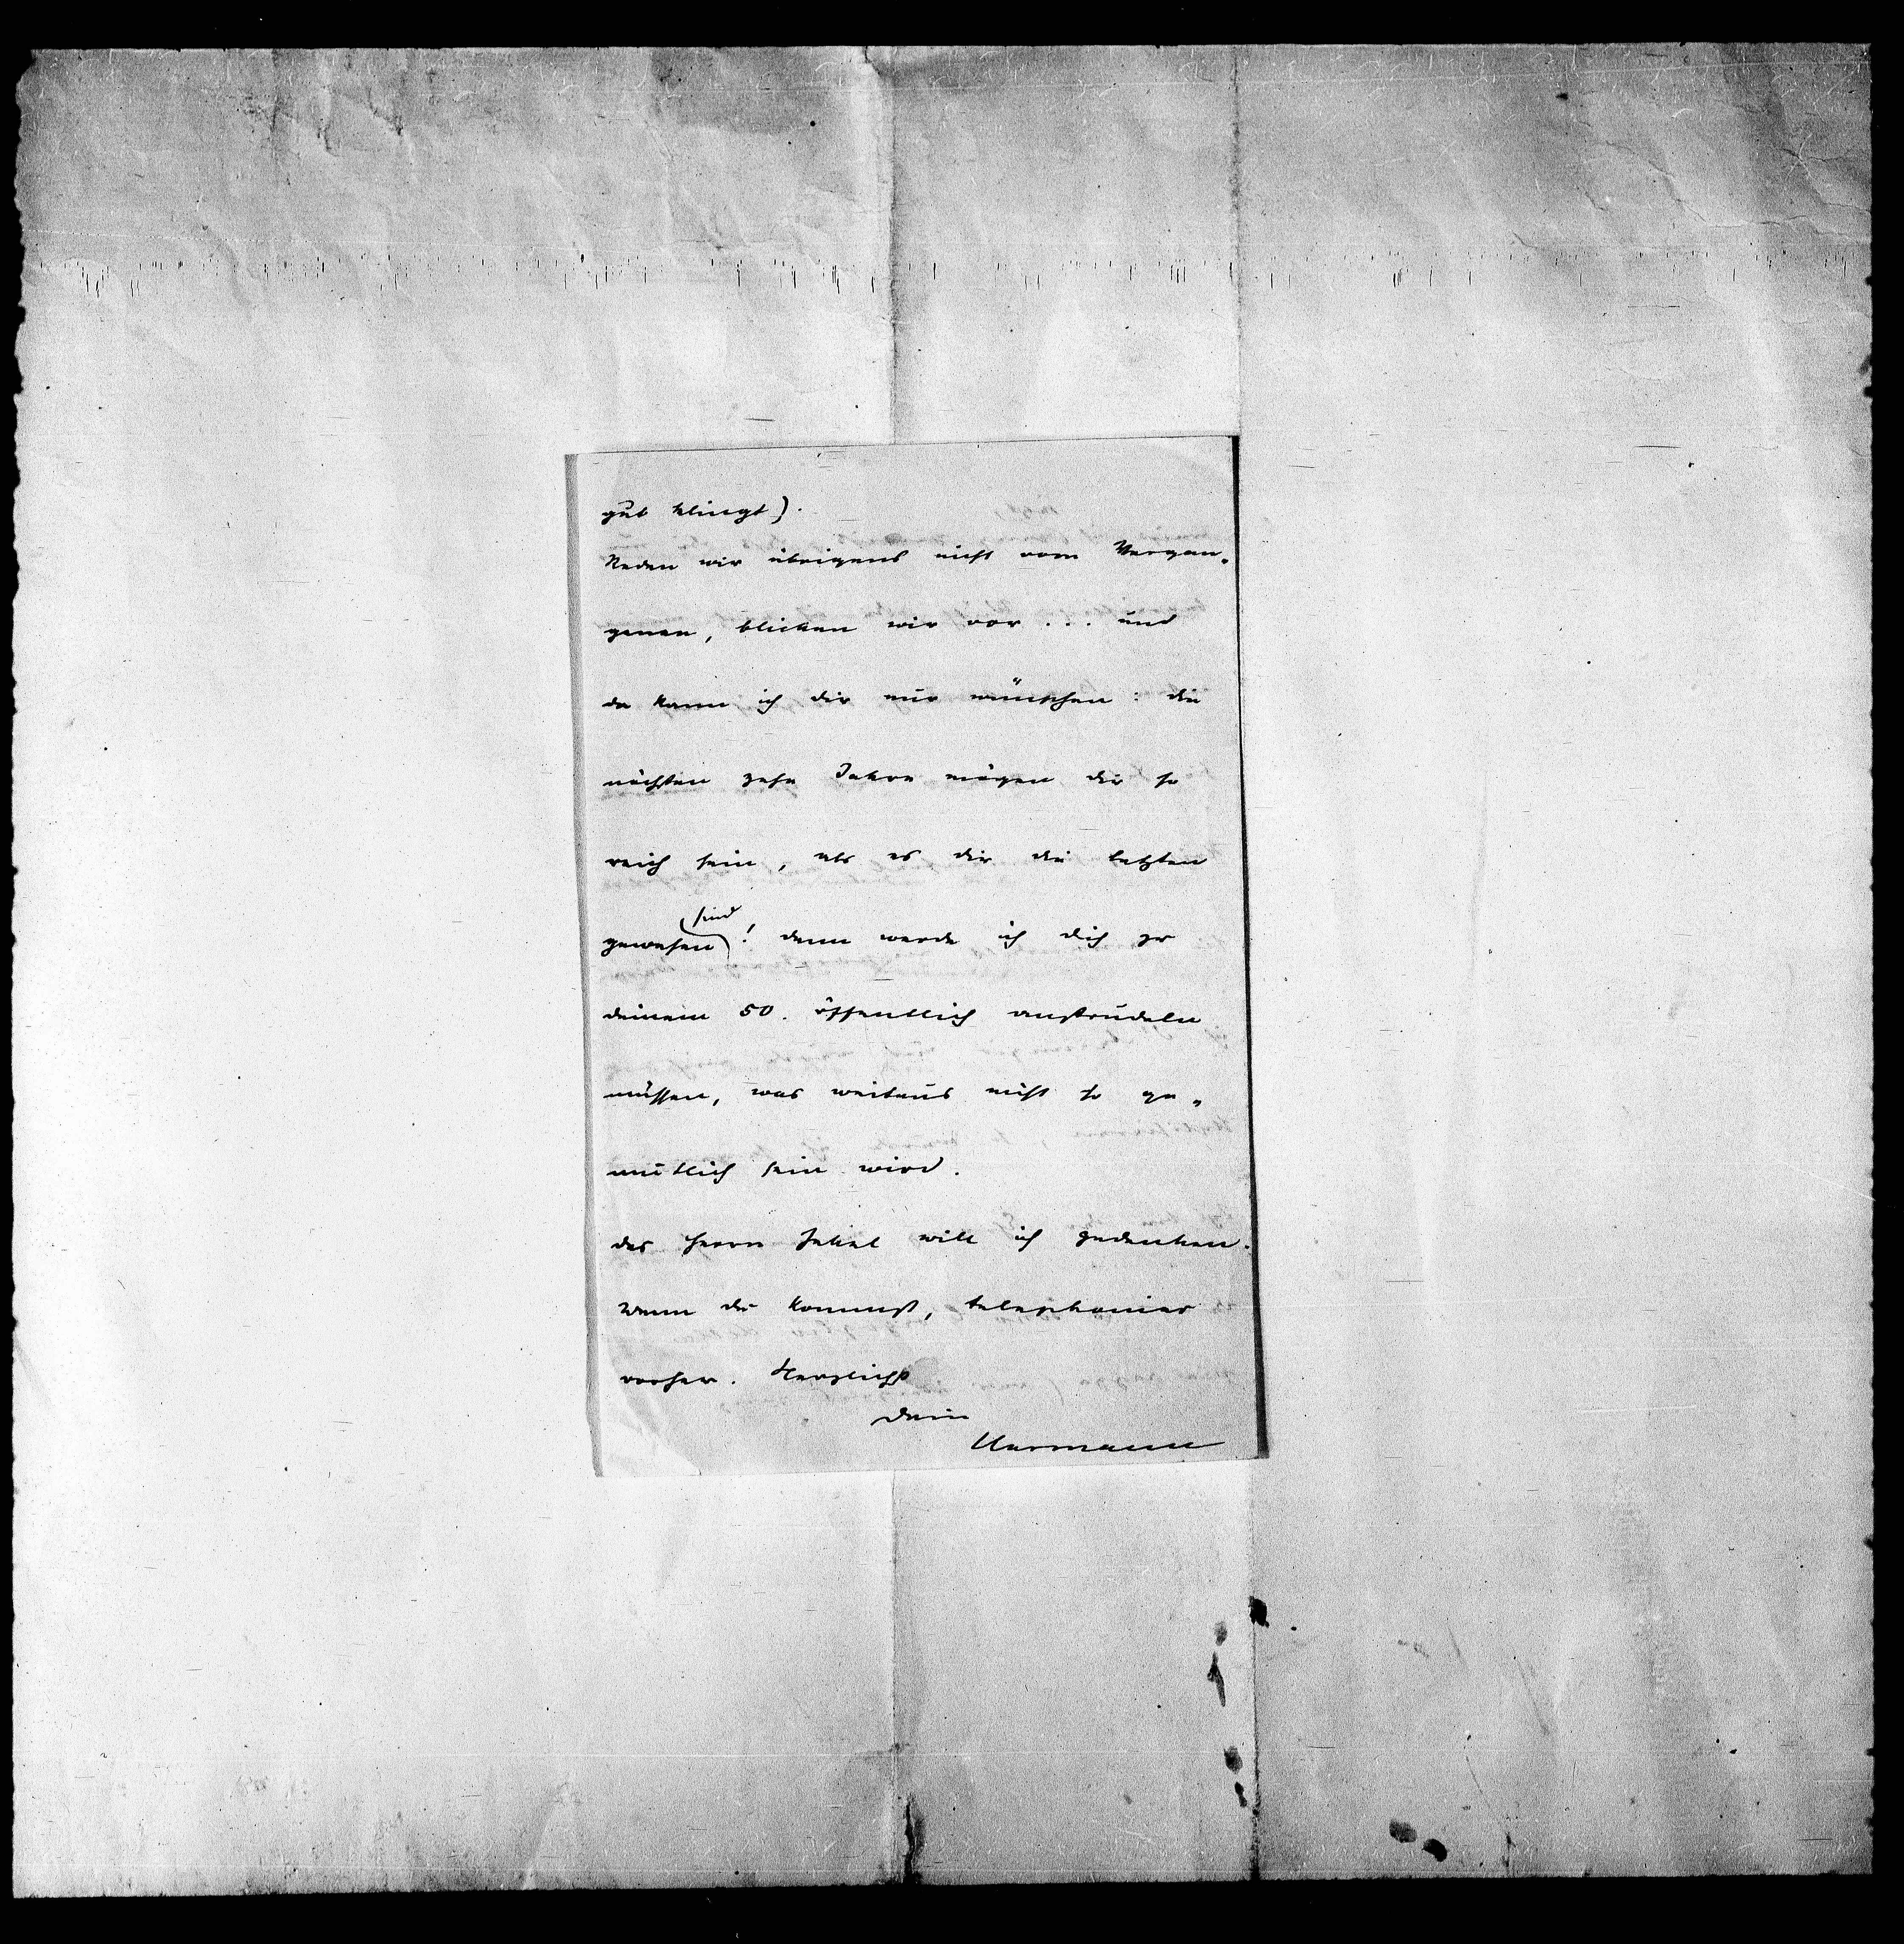 gut klingt).
Reden wir übrigens nicht vom Vergan-
genen, blicken wir vor ... und
da kann ich dir nur wünschen: die
nächsten zehn Jahre mögen dir so
reich sein, als es dir die letzten
gewesen sind! dann werde ich dich zu
deinem 50. öffentlich anstrudeln
müssen, was weitaus nicht so ge-
mütlich sein wird.
des Herrn will ich gedenken.
Wenn du kommst, telephonier
vorher. Herzlichst
dein
Hermann